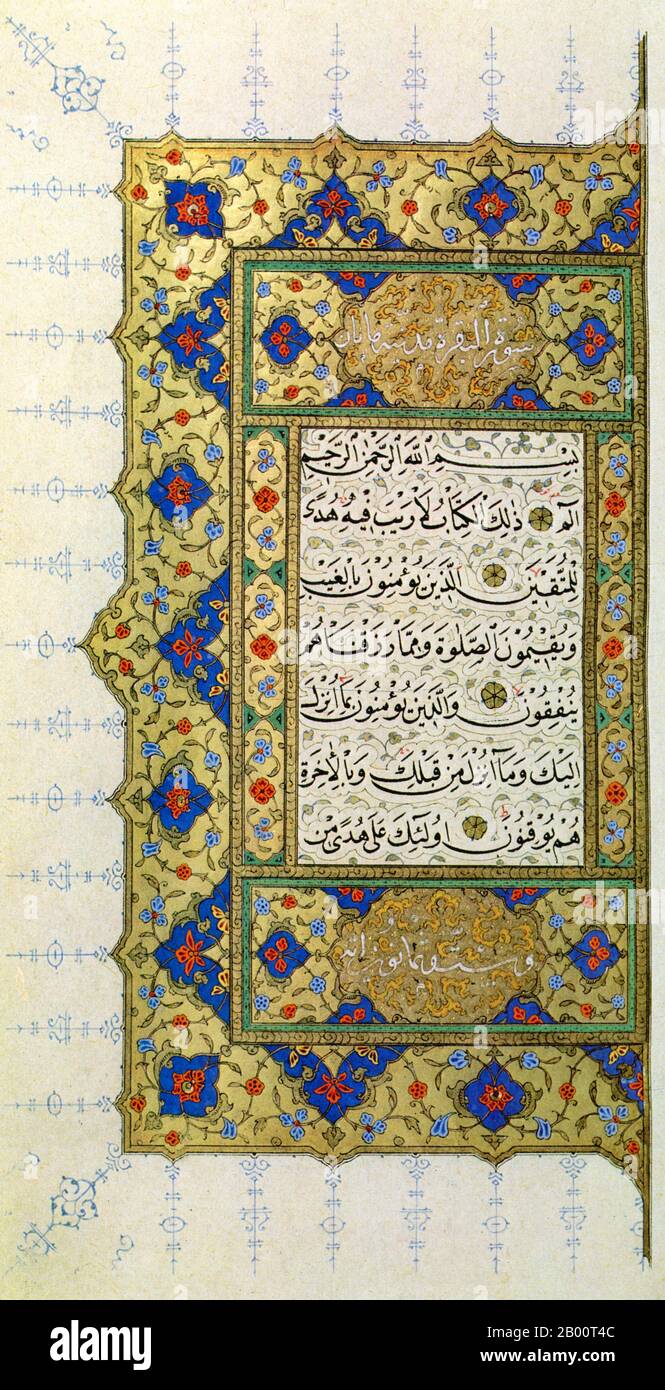 سورة البقرة مدنية مايتان
بِسْمِ اللهِ الرَّحْمٰنِ الرَّحِيمِ
الم ذٰلِكَ الْكِتَابُ لَا رَيْبَ فِيهِ هُدًى
لِلْمُتَّقِينَ الَّذِينَ يُؤْمِنُونَ بِالْغَيْبِ
وَيُقِيمُونَ الصَّلٰوةَ وَمِمَّا رَزَقْنَاهُمْ
يُنْفِقُونَ وَالَّذِينَ يُؤْمِنُونَ بِمَا اُنْزِلَ
اِلَيْكَ وَمَا اُنْزِلَ مِنْ قَبْلِكَ وَبِالْاٰخِرَةِ
هُمْ يُوقِنُونَ اُولٰئِكَ عَلٰى هُدًى مِنْ
وست وثمانون اية
alamy
Image ID: 2B00T4C
www.alamy.com